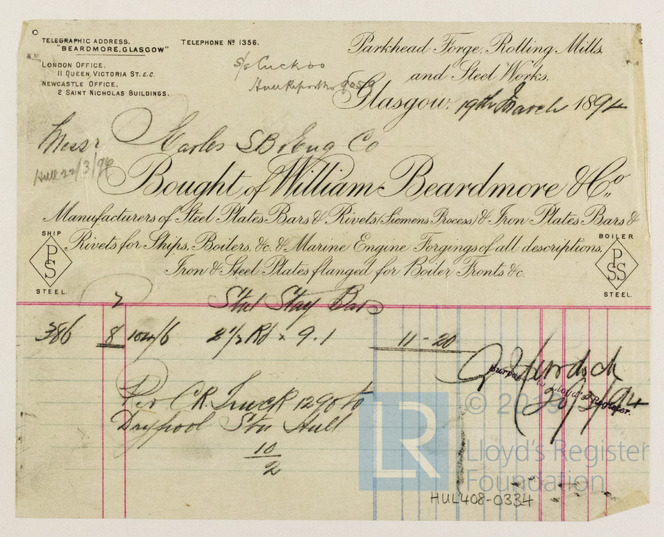 TELEGRAPHIC ADDRESS.
"BEARDMORE, GLASGOW"
TELEPHONE Nº 1356.
LONDON OFFICE,
11 QUEEN VICTORIA ST. E.C.
NEWCASTLE OFFICE,
2 SAINT NICHOLAS BUILDINGS.
Parkhead Forge, Rolling Mills,
and Steel Works.
S/S Cuckoo
Hull Report No
Glasgow, 19th March 1894
Messrs Earles S B & Eng Co
Hull 22/3/94
Bought of William Beardmore & Co
Manufacturers of Steel Plates Bars & Rivets (Siemens Process) & Iron Plates Bars &
Rivets for Ships, Boilers, &c. & Marine Engine Forgings of all descriptions.
Iron & Steel Plates flanged for Boiler Fronts &c
SHIP
PS
STEEL.
BOILER
PSS
STEEL.
Steel Stay Bars
386 8 2 1/2 Rd x 9.1 11-20
J Murdoch
20/3/94
Per C.R. Truck 1290 to
Drypool Stn Hull
10
2
© 20
LR
Lloyd's Register
Foundation
HUL408-0334